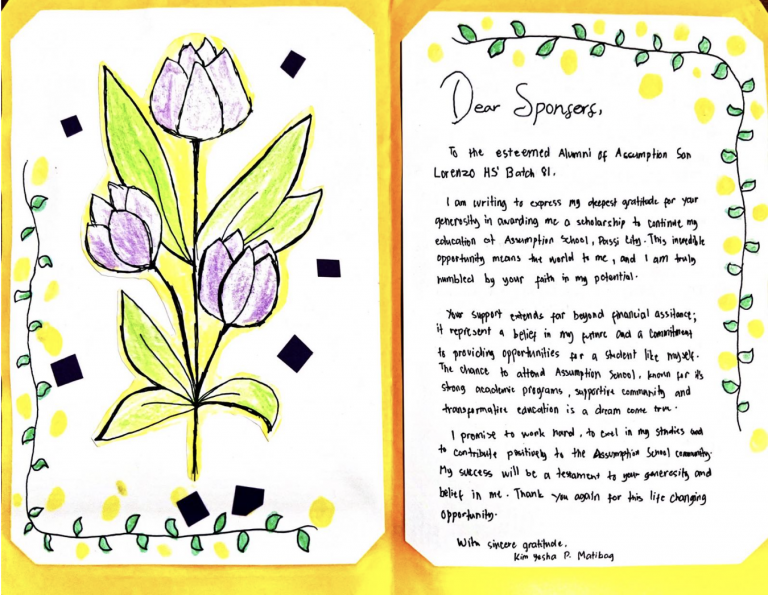 Dear Sponsers,
To the esteemed Alumni of Assumption San
Lorenzo HS' Batch 81.
I am writing to express my deepest gratitude for your
generosity in awarding me a scholarship to continue my
education at Assumption School, Passi City. This incredible
opportunity means the world to me, and I am truly
humbled by your faith in my potential.
Your support extends far beyond financial assitance;
it represent a belief in my future and a commitment
to providing opportunities for a student like myself.
The chance to attend Assumption School, known for it's
strong academic programs, supportive community and
transformative education is a dream come true.
I promise to work hard, to excel in my studies and
to contribute positively to the Assumption School community.
My success will be a testament to your generosity and
belief in me. Thank you again for this life changing
opportunity.
With sincere gratitude.
Kim yosha P. Matibag